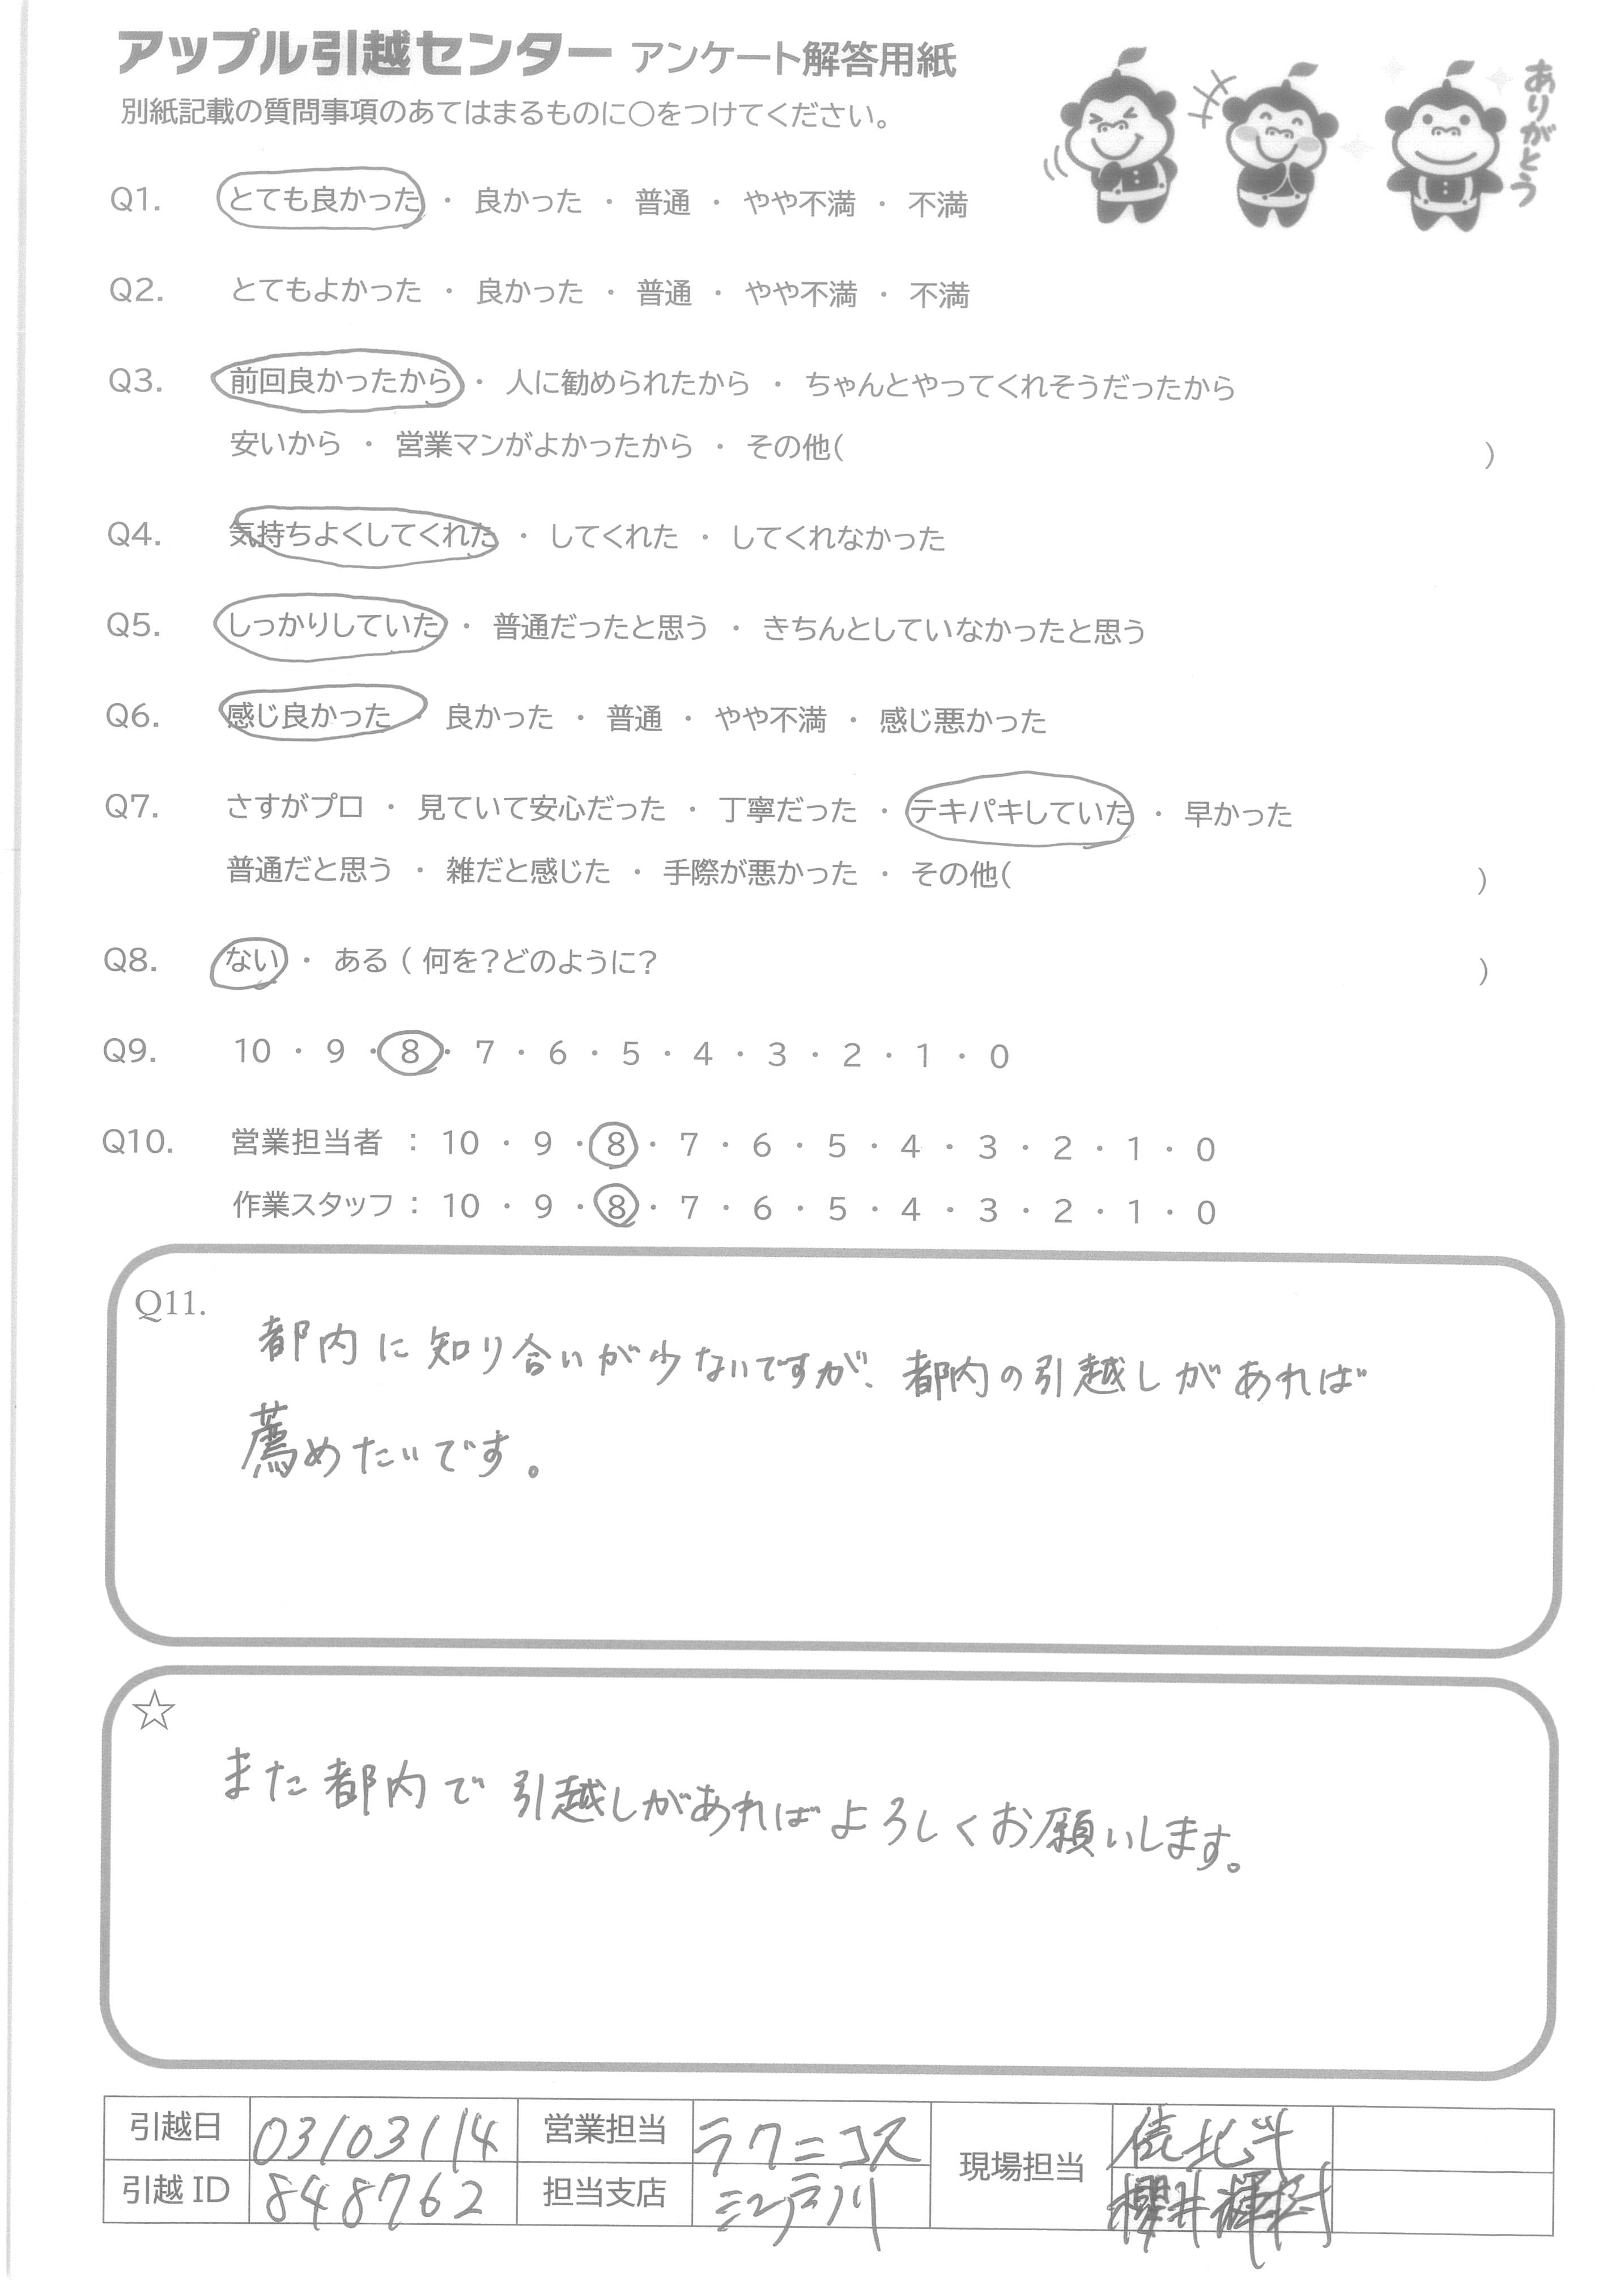 アップル引越センター アンケート解答用紙
別紙記載の質問事項のあてはまるものに○をつけてください。
ありがとう
Q1. とても良かった ・ 良かった ・ 普通 ・ やや不満 ・ 不満
Q2. とてもよかった ・ 良かった ・ 普通 ・ やや不満 ・ 不満
Q3. 前回良かったから ・ 人に勧められたから ・ ちゃんとやってくれそうだったから
安いから ・ 営業マンがよかったから ・ その他( )
Q4. 気持ちよくしてくれた ・ してくれた ・ してくれなかった
Q5. しっかりしていた ・ 普通だったと思う ・ きちんとしていなかったと思う
Q6. 感じ良かった ・ 良かった ・ 普通 ・ やや不満 ・ 感じ悪かった
Q7. さすがプロ ・ 見ていて安心だった ・ 丁寧だった ・ テキパキしていた ・ 早かった
普通だと思う ・ 雑だと感じた ・ 手際が悪かった ・ その他( )
Q8. ない ・ ある ( 何を?どのように? )
Q9. 10 ・ 9 ・ 8 ・ 7 ・ 6 ・ 5 ・ 4 ・ 3 ・ 2 ・ 1 ・ 0
Q10. 営業担当者 : 10 ・ 9 ・ 8 ・ 7 ・ 6 ・ 5 ・ 4 ・ 3 ・ 2 ・ 1 ・ 0
作業スタッフ : 10 ・ 9 ・ 8 ・ 7 ・ 6 ・ 5 ・ 4 ・ 3 ・ 2 ・ 1 ・ 0
Q11.
都内に知り合いが少ないですが、都内の引越しがあれば
薦めたいです。
☆
また都内で引越しがあればよろしくお願いします。
引越日 03/03/14 営業担当 ラクニコス 現場担当 北斗
引越ID 848762 担当支店 江戸川 櫻井輝樹